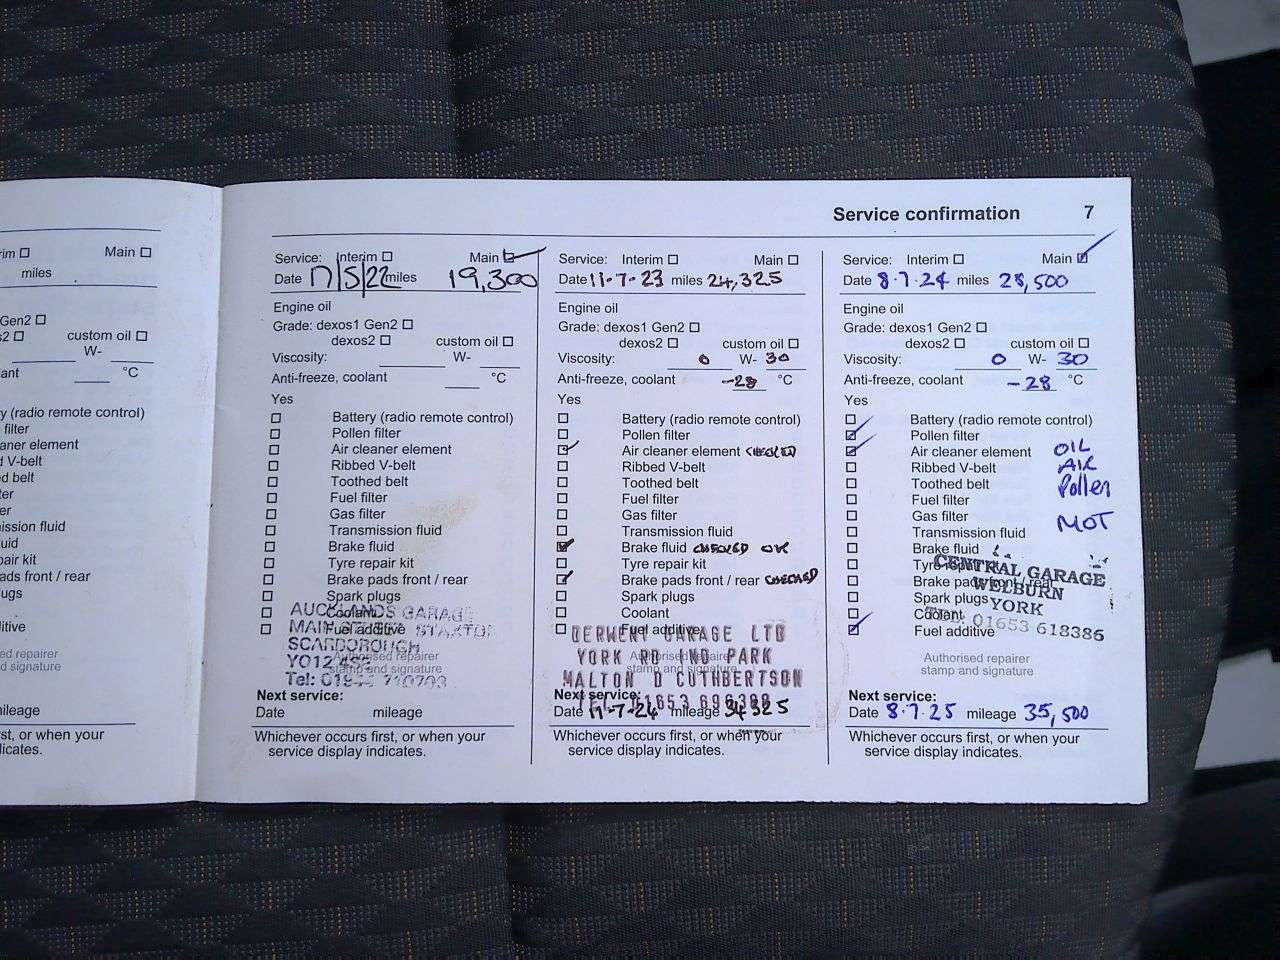 Service confirmation 7
im
Main
miles
Gen2
s2
custom oil
W-
ant
°C
y (radio remote control)
filter
aner element
d V-belt
ed belt
ter
er
ission fluid
uid
pair kit
ads front / rear
ugs
itive
ed repairer
nd signature
ileage
st, or when your
cates.
Service: Interim Main
Date 17/5/22 miles 19,300
Engine oil
Grade: dexos1 Gen2
dexos2 custom oil
Viscosity: W-
Anti-freeze, coolant °C
Yes
Battery (radio remote control)
Pollen filter
Air cleaner element
Ribbed V-belt
Toothed belt
Fuel filter
Gas filter
Transmission fluid
Brake fluid
Tyre repair kit
Brake pads front / rear
Spark plugs
Coolant
Fuel additive
AUCKLANDS GARAGE
MAIN STREET
SCARBOROUGH
YO12
Tel:
Authorised repairer
stamp and signature
Next service:
Date mileage
Whichever occurs first, or when your
service display indicates.
Service: Interim Main
Date 11-7-23 miles 24,325
Engine oil
Grade: dexos1 Gen2
dexos2 custom oil
Viscosity: 0 W- 30
Anti-freeze, coolant -28 °C
Yes
Battery (radio remote control)
Pollen filter
Air cleaner element CHECKED
Ribbed V-belt
Toothed belt
Fuel filter
Gas filter
Transmission fluid
Brake fluid CHECKED OK
Tyre repair kit
Brake pads front / rear CHECKED
Spark plugs
Coolant
Fuel additive
DERWENT GARAGE LTD
YORK RD IND PARK
MALTON D CUTHBERTSON
Authorised repairer
stamp and signature
Next service:
Date 11-7-24 mileage 34325
Whichever occurs first, or when your
service display indicates.
Service: Interim Main
Date 8.7.24 miles 28,500
Engine oil
Grade: dexos1 Gen2
dexos2 custom oil
Viscosity: 0 W- 30
Anti-freeze, coolant -28 °C
Yes
Battery (radio remote control)
Pollen filter
Air cleaner element OIL
Ribbed V-belt AIR
Toothed belt Pollen
Fuel filter
Gas filter MOT
Transmission fluid
Brake fluid
Tyre repair kit
Brake pads front / rear
Spark plugs
Coolant
Fuel additive
CENTRAL GARAGE
WELBURN
YORK
TEL: 01653 618386
Authorised repairer
stamp and signature
Next service:
Date 8.7.25 mileage 35,500
Whichever occurs first, or when your
service display indicates.